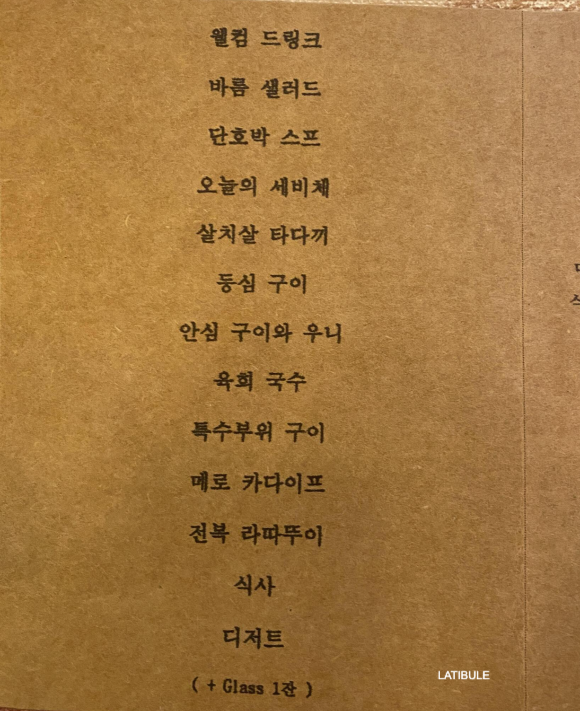 웰컴 드링크
바름 샐러드
단호박 스프
오늘의 세비체
살치살 타다끼
등심 구이
안심 구이와 우니
육회 국수
특수부위 구이
메로 카다이프
전복 라따뚜이
식사
디저트
( + Glass 1잔 )
LATIBULE